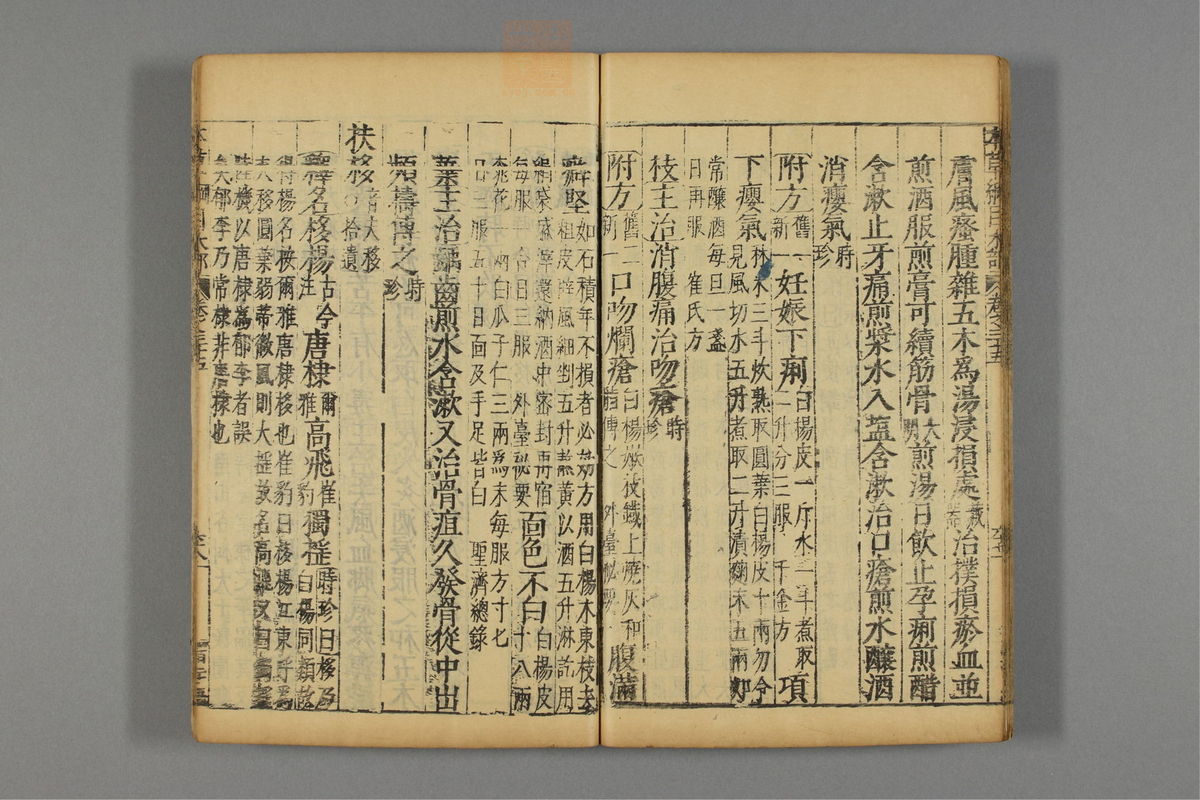 本草綱目木部 卷之三十五
膚風瘙腫雜五木為湯浸損處藏器治撲損瘀血並
煎酒服煎膏可續筋骨大明煎湯日飲止孕痢煎醋
含漱止牙痛煎漿水入鹽含漱治口瘡煎水釀酒
消癭氣時珍
附方舊一新一妊娠下痢白楊皮一斤水一斗煮取二升分三服千金方項
下癭氣秫米三斗炊熟取圓葉白楊皮十兩勿令見風切水五升煮取二升漬麴末五兩如
常釀酒每旦一盞日再服崔氏方
枝主治消腹痛治吻瘡時珍
附方舊二新一口吻爛瘡白楊嫩枝鐵上燒灰和脂傅之外臺秘要腹滿
癖堅如石積年不損者必効方用白楊木東枝去粗皮辟風細剉五升熬黃以酒五升淋訖用
絹袋盛滓還納酒中密封再宿每服一合日三服外臺秘要面色不白白楊皮十八兩
桃花一兩白瓜子仁三兩為末每服方寸匕日三服五十日面及手足皆白聖濟總錄
葉主治齲齒煎水含漱又治骨疽久發骨從中出
頻擣傅之時珍
扶栘音夫移○拾遺
釋名栘楊古今注唐棣爾雅高飛崔豹獨搖時珍曰栘乃白楊同類故
得楊名按爾雅唐棣栘也崔豹曰栘楊江東呼為
夫栘圓葉弱蒂微風則大搖故名高飛又曰獨搖
陸機以唐棣為郁李者誤
矣郁李乃常棣非唐棣也
本草綱目木部 卷之三十五